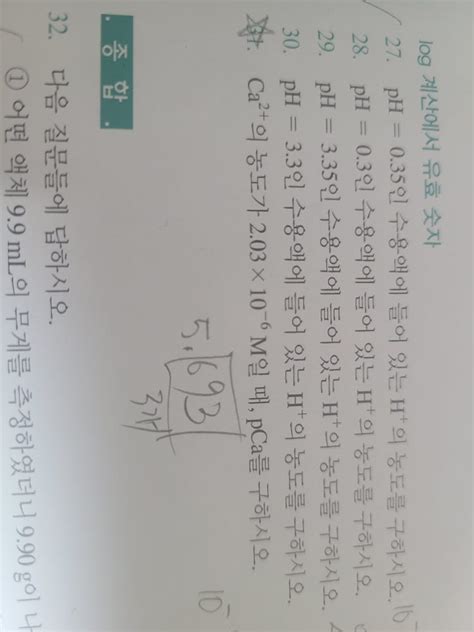 log 계산에서 유효 숫자
27. pH = 0.35인 수용액에 들어 있는 H⁺의 농도를 구하시오.
28. pH = 0.3인 수용액에 들어 있는 H⁺의 농도를 구하시오.
29. pH = 3.35인 수용액에 들어 있는 H⁺의 농도를 구하시오.
30. pH = 3.3인 수용액에 들어 있는 H⁺의 농도를 구하시오.
31. Ca²⁺의 농도가 2.03 × 10⁻⁶ M일 때, pCa를 구하시오.
5.693
3개
10⁻
종 합
32. 다음 질문들에 답하시오.
① 어떤 액체 9.9 mL의 무게를 측정하였더니 9.90 g이 나